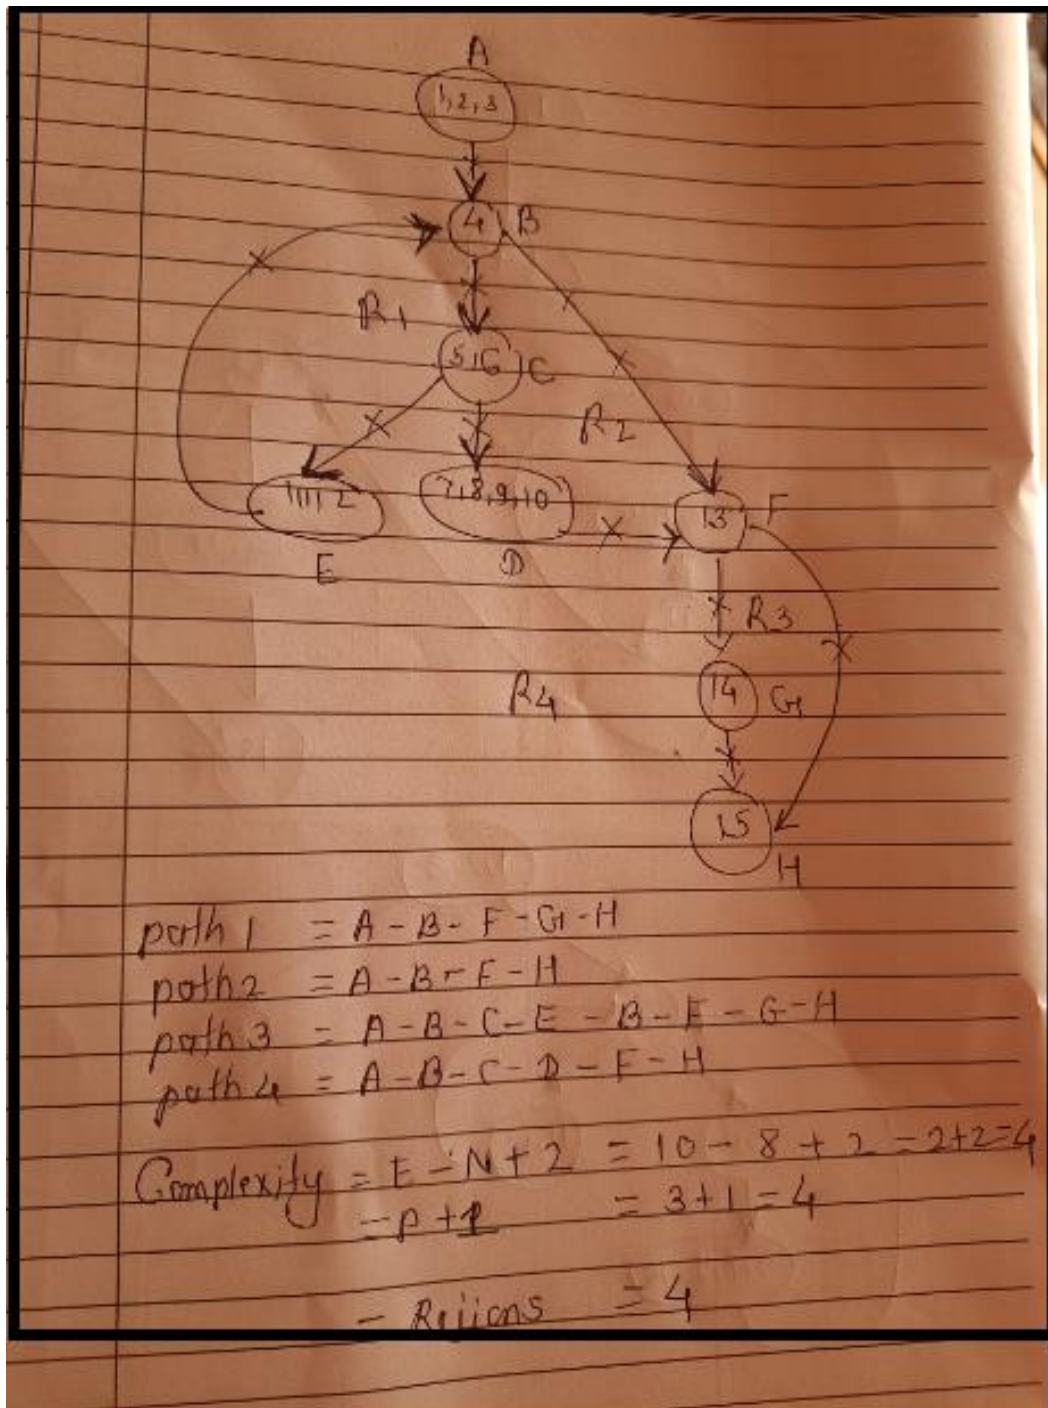 A
1, 2, 3
4 B
R1
5, 6 C
R2
11, 12
7, 8, 9, 10
13 F
E
D
R3
14 G
R4
15
H
path 1 = A - B - F - G - H
path 2 = A - B - F - H
path 3 = A - B - C - E - B - F - G - H
path 4 = A - B - C - D - F - H
Complexity = E - N + 2 = 10 - 8 + 2 = 2+2=4
= P + 1 = 3 + 1 = 4
- Rejions = 4